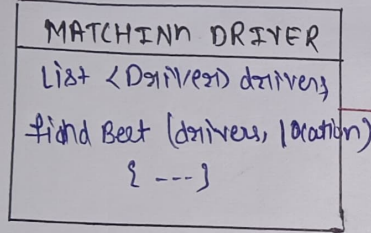 MATCHINn DRIVER
List <Driver> drivers
find Best (drivers, location)
{ --- }